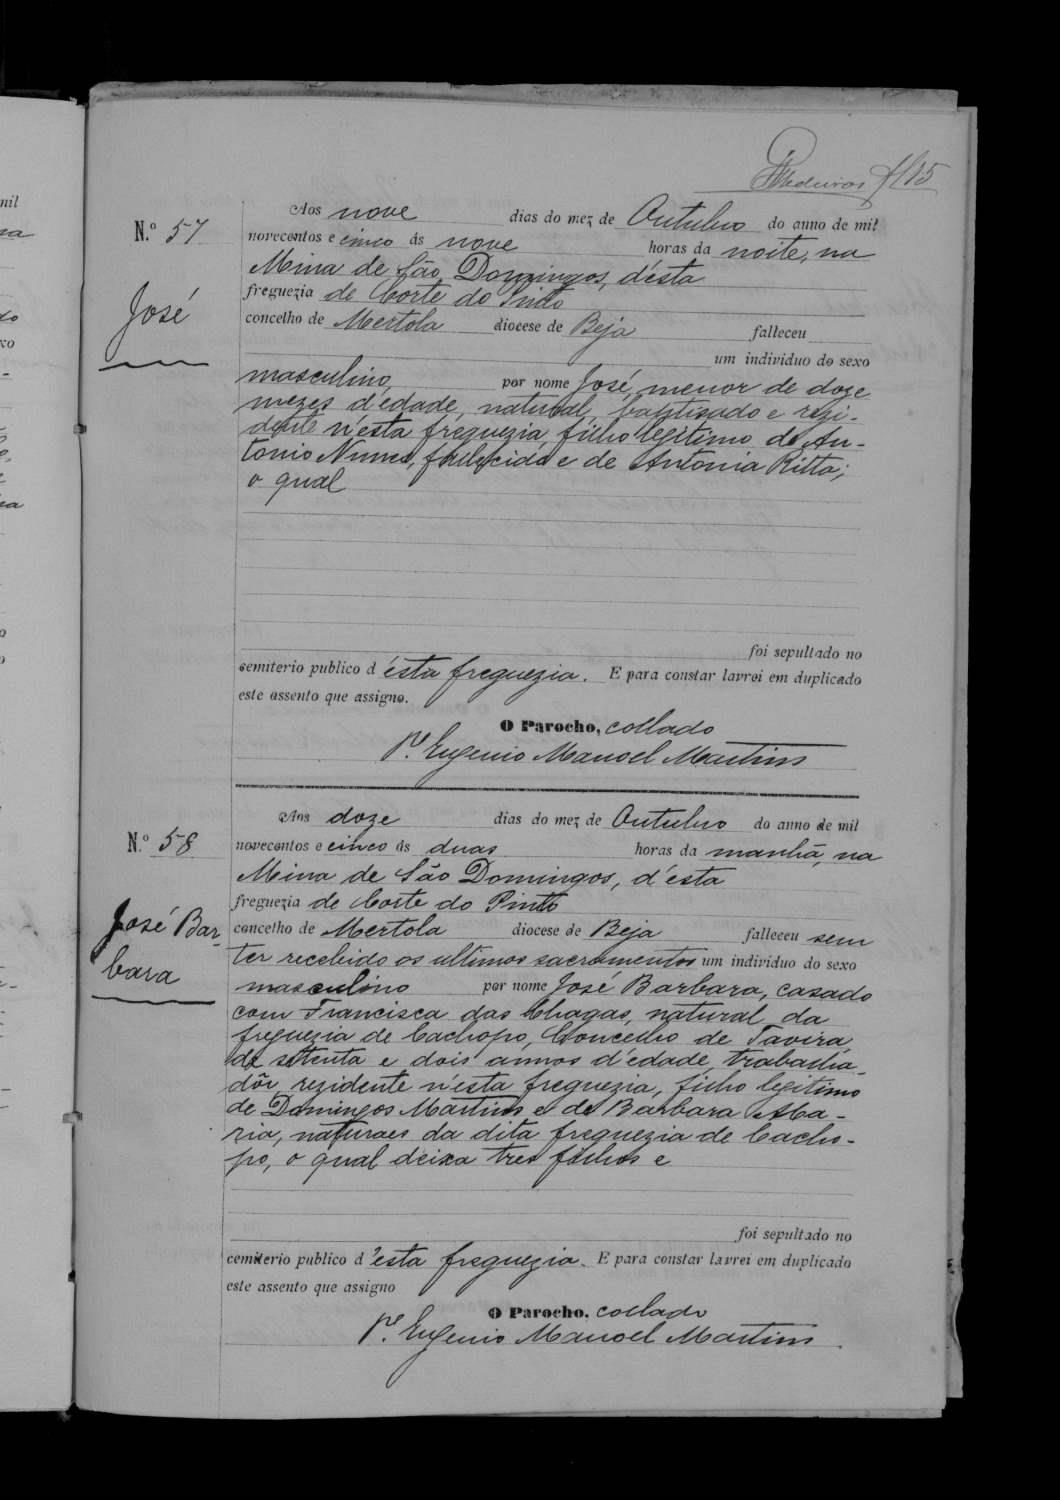 Medeiros 115
N.º 57
José
Aos nove dias do mez de Outubro do anno de mil
novecentos e cinco ás nove horas da noite, na
Mina de São Domingos, d'ésta
freguezia de Corte do Pinto
concelho de Mertola diocese de Beja falleceu
um individuo do sexo
masculino, por nome José, menor de doze
mezes d'edade, natural, baptisado e rezi-
dente n'esta freguezia, filho legitimo de An-
tonio Nunes, fallecido e de Antonia Ritta;
o qual
foi sepultado no
semiterio publico d'ésta freguezia. E para constar lavrei em duplicado
este assento que assigno.
O Parocho, collado
P.e Eugenio Manoel Martins
N.º 58
José Bar-
bara
Aos doze dias do mez de Outubro do anno de mil
novecentos e cinco ás duas horas da manhã, na
Mina de São Domingos, d'ésta
freguezia de Corte do Pinto
concelho de Mertola diocese de Beja falleceu sem
ter recebido os ultimos sacramentos um individuo do sexo
masculino por nome José Barbara, casado
com Francisca das Chagas, natural da
freguezia de Cachopo, Concelho de Tavira,
de setenta e dois annos d'edade, trabalha-
dôr, rezidente n'esta freguezia, filho legitimo
de Domingos Martins e de Barbara Ma-
ria, naturaes da dita freguezia de Cacho-
po, o qual deixa tres filhos e
foi sepultado no
cemiterio publico d'ésta freguezia. E para constar lavrei em duplicado
este assento que assigno
O Parocho, collado
P.e Eugenio Manoel Martins